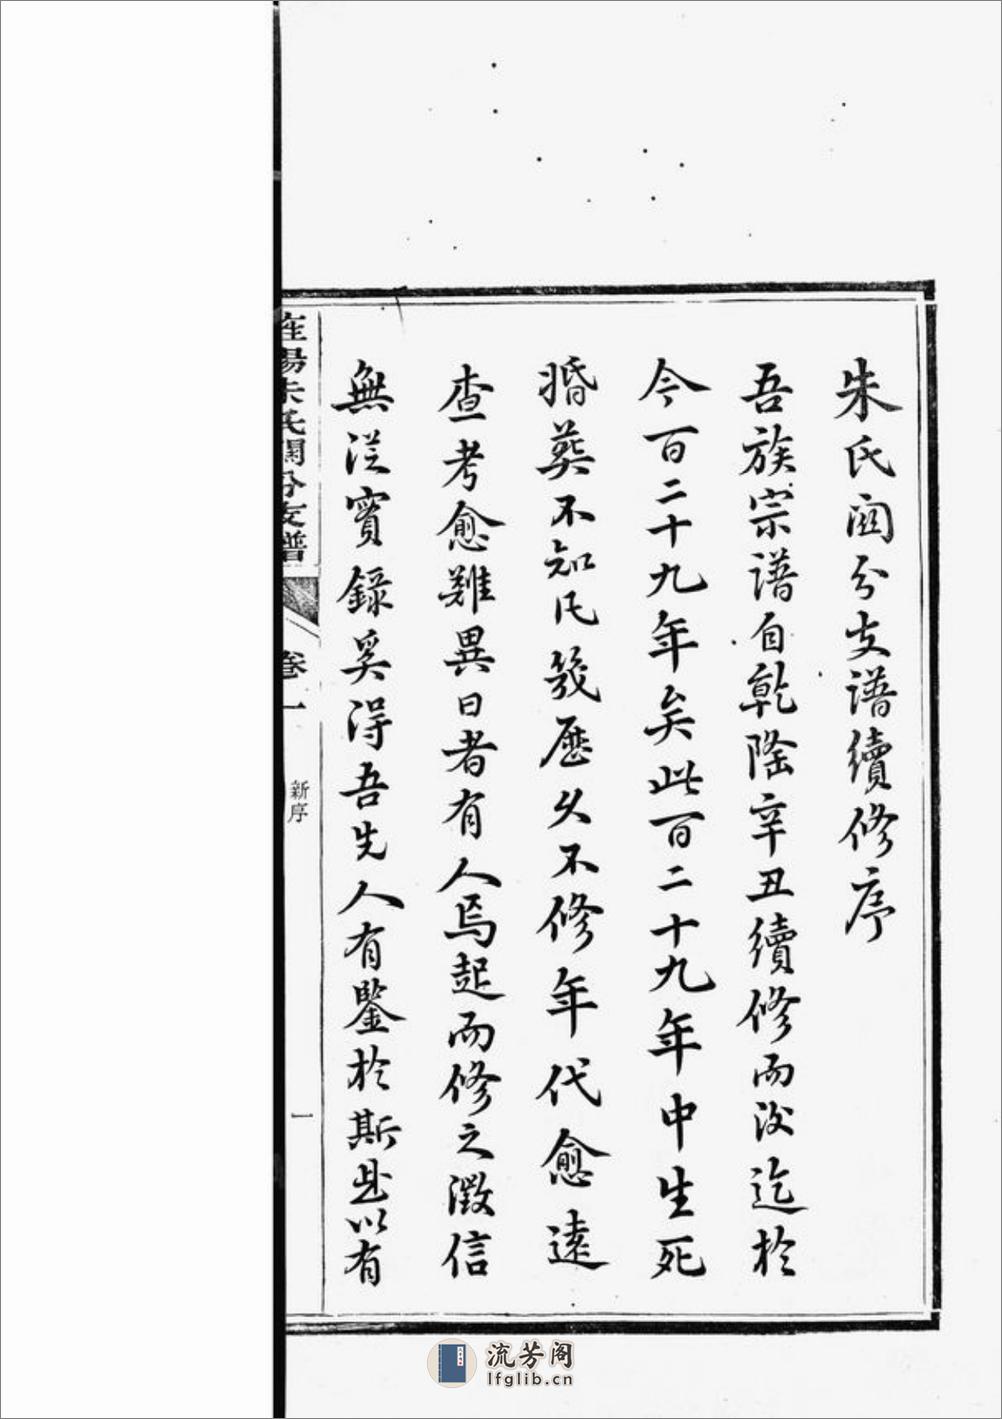 朱氏阄分支譜續修序
吾族宗譜自乾隆辛丑續修而後迄於
今百二十九年矣此百二十九年中生死
婚葬不知凡幾歷久不修年代愈遠
查考愈難異日者有人焉起而修之徵信
無從實錄奚得吾先人有鑒於斯是以有
陽朱氏阄分支譜
卷一
新序
一
流芳阁
lfglib.cn